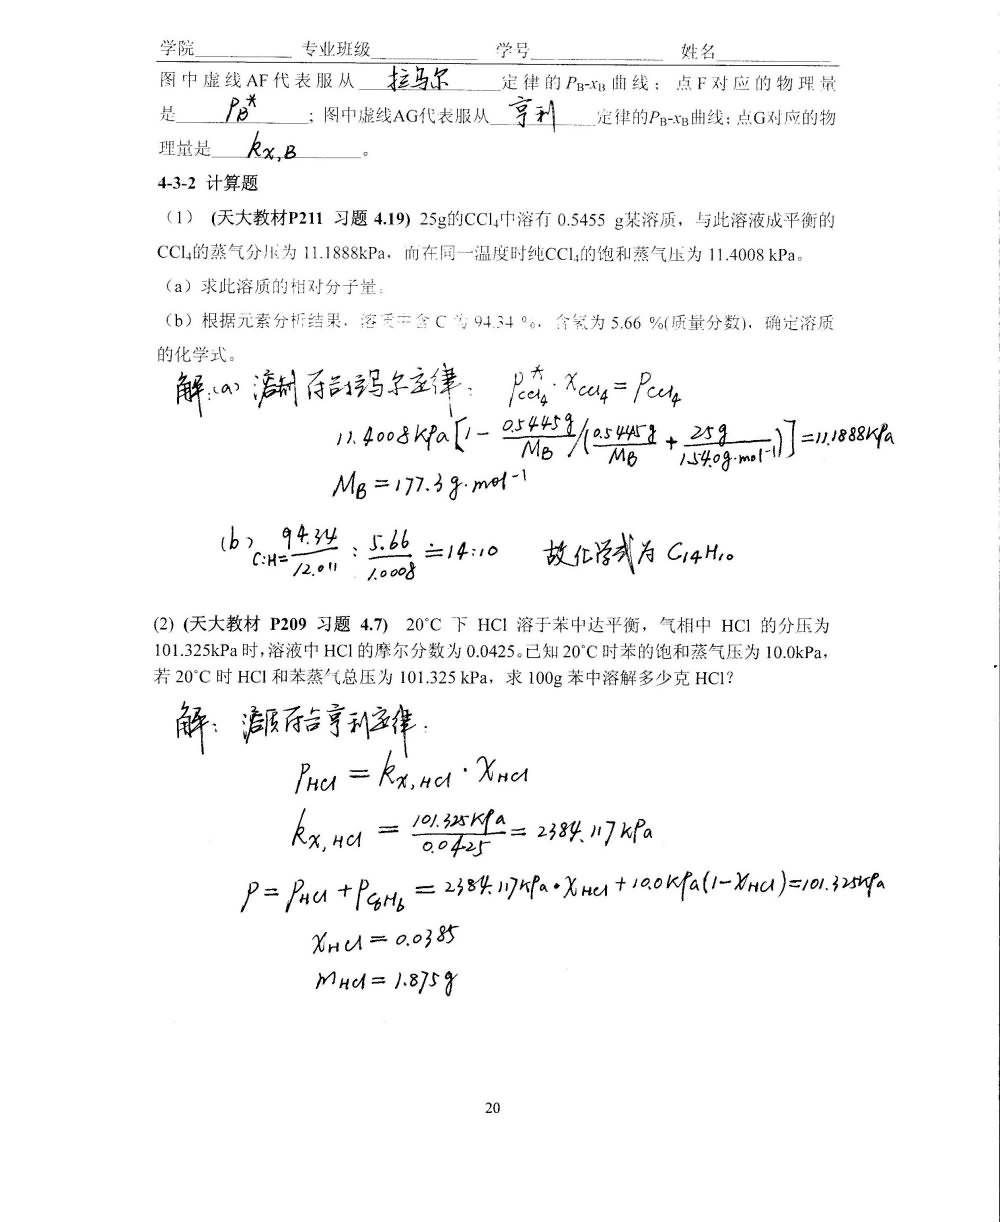 学院 专业班级 学号 姓名
图中虚线AF代表服从 拉乌尔 定律的PB-xB曲线；点F对应的物理量
是 PB* ；图中虚线AG代表服从 亨利 定律的PB-xB曲线；点G对应的物
理量是 kx,B 。
4-3-2 计算题
（1） (天大教材P211 习题 4.19) 25g的CCl4中溶有 0.5455 g某溶质，与此溶液成平衡的
CCl4的蒸气分压为 11.1888kPa，而在同一温度时纯CCl4的饱和蒸气压为 11.4008 kPa。
（a）求此溶质的相对分子量。
（b）根据元素分析结果，溶质中含 C 为 94.34 %，含氢为 5.66 %(质量分数)，确定溶质
的化学式。
解:(a) 溶剂符合拉乌尔定律： P*CCl4·xCCl4=PCCl4
11.4008kPa[1-0.5445g/MB/(0.5445g/MB+25g/154.0g·mol-1)]=11.1888kPa
MB=177.3g·mol-1
(b) C:H=94.34/12.011:5.66/1.0008≐14:10 故化学式为C14H10
(2) (天大教材 P209 习题 4.7) 20°C 下 HCl 溶于苯中达平衡，气相中 HCl 的分压为
101.325kPa 时，溶液中 HCl 的摩尔分数为 0.0425。已知 20°C 时苯的饱和蒸气压为 10.0kPa，
若 20°C 时 HCl 和苯蒸气总压为 101.325 kPa，求 100g 苯中溶解多少克 HCl?
解：溶质符合亨利定律：
PHCl=kx,HCl·xHCl
kx,HCl=101.325kPa/0.0425=2384.117kPa
P=PHCl+PC6H6=2384.117kPa·xHCl+10.0kPa(1-xHCl)=101.325kPa
xHCl=0.0385
mHCl=1.875g
20